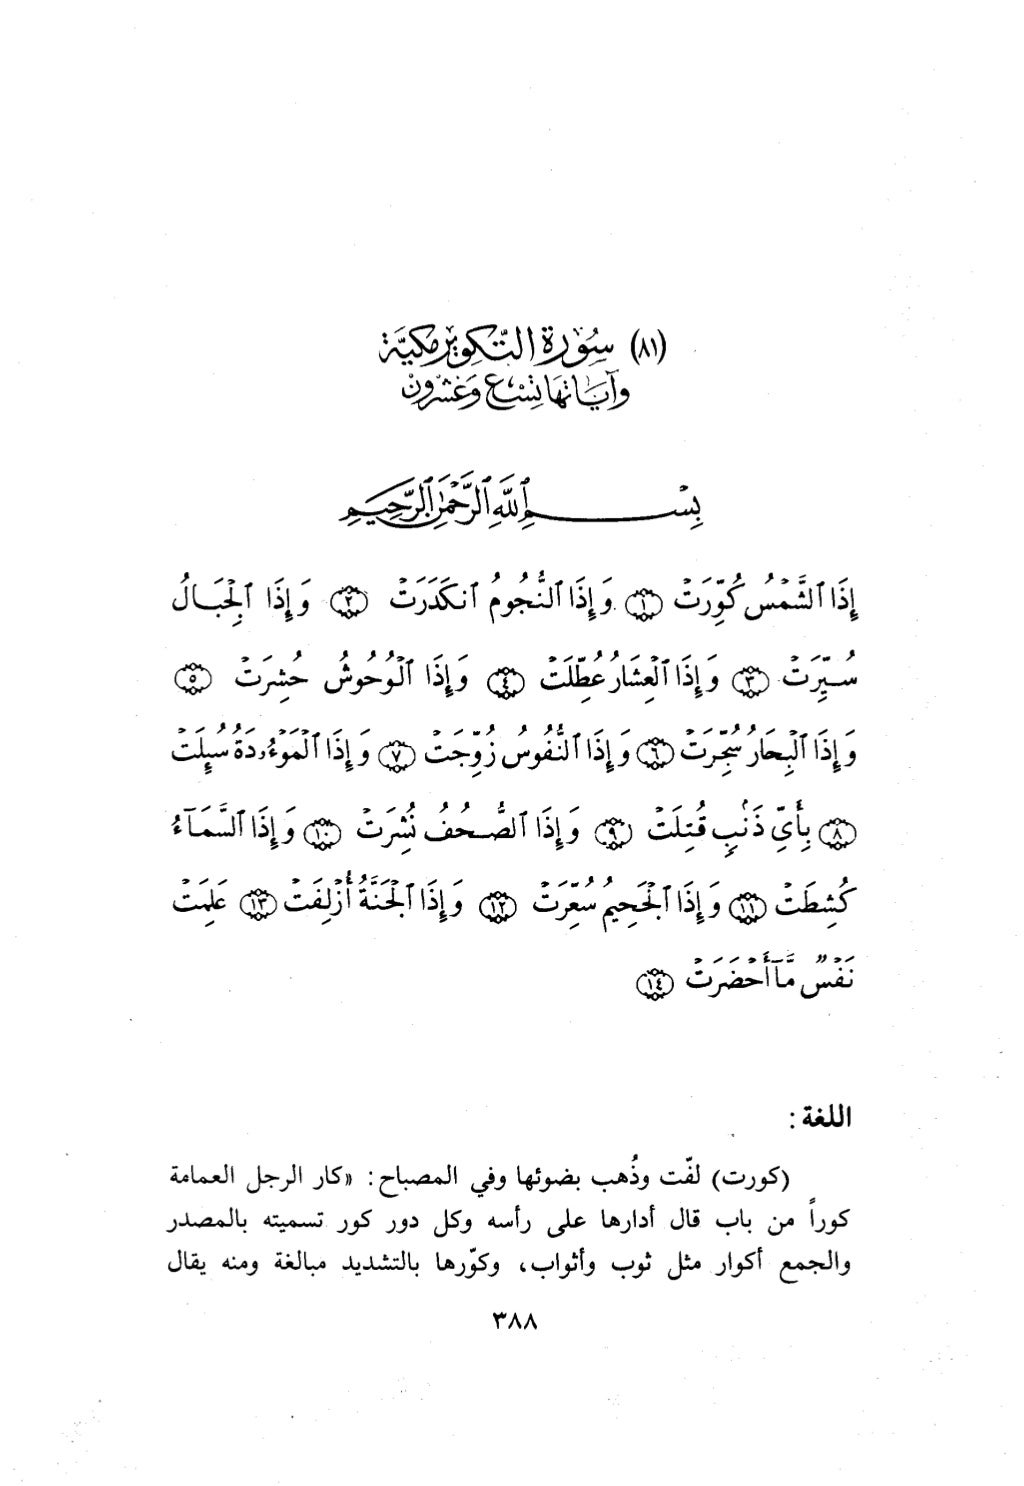 (٨١) سُورة التّكوير مكيَّة
وَآيَاتهَا تِسْع وَعشْرُونْ
بِسْمِ ٱللَّهِ ٱلرَّحْمَٰنِ ٱلرَّحِيمِ
إِذَا ٱلشَّمْسُ كُوِّرَتْ ١ وَإِذَا ٱلنُّجُومُ ٱنكَدَرَتْ ٢ وَإِذَا ٱلْجِبَالُ
سُيِّرَتْ ٣ وَإِذَا ٱلْعِشَارُ عُطِّلَتْ ٤ وَإِذَا ٱلْوُحُوشُ حُشِرَتْ ٥
وَإِذَا ٱلْبِحَارُ سُجِّرَتْ ٦ وَإِذَا ٱلنُّفُوسُ زُوِّجَتْ ٧ وَإِذَا ٱلْمَوْءُۥدَةُ سُئِلَتْ
٨ بِأَيِّ ذَنۢبٍ قُتِلَتْ ٩ وَإِذَا ٱلصُّحُفُ نُشِرَتْ ١٠ وَإِذَا ٱلسَّمَآءُ
كُشِطَتْ ١١ وَإِذَا ٱلْجَحِيمُ سُعِّرَتْ ١٢ وَإِذَا ٱلْجَنَّةُ أُزْلِفَتْ ١٣ عَلِمَتْ
نَفْسٌ مَّآ أَحْضَرَتْ ١٤
اللغة :
(كورت) لفّت وذُهب بضوئها وفي المصباح: «كار الرجل العمامة
كوراً من باب قال أدارها على رأسه وكل دور كور تسميته بالمصدر
والجمع أكوار مثل ثوب وأثواب، وكوّرها بالتشديد مبالغة ومنه يقال
٣٨٨